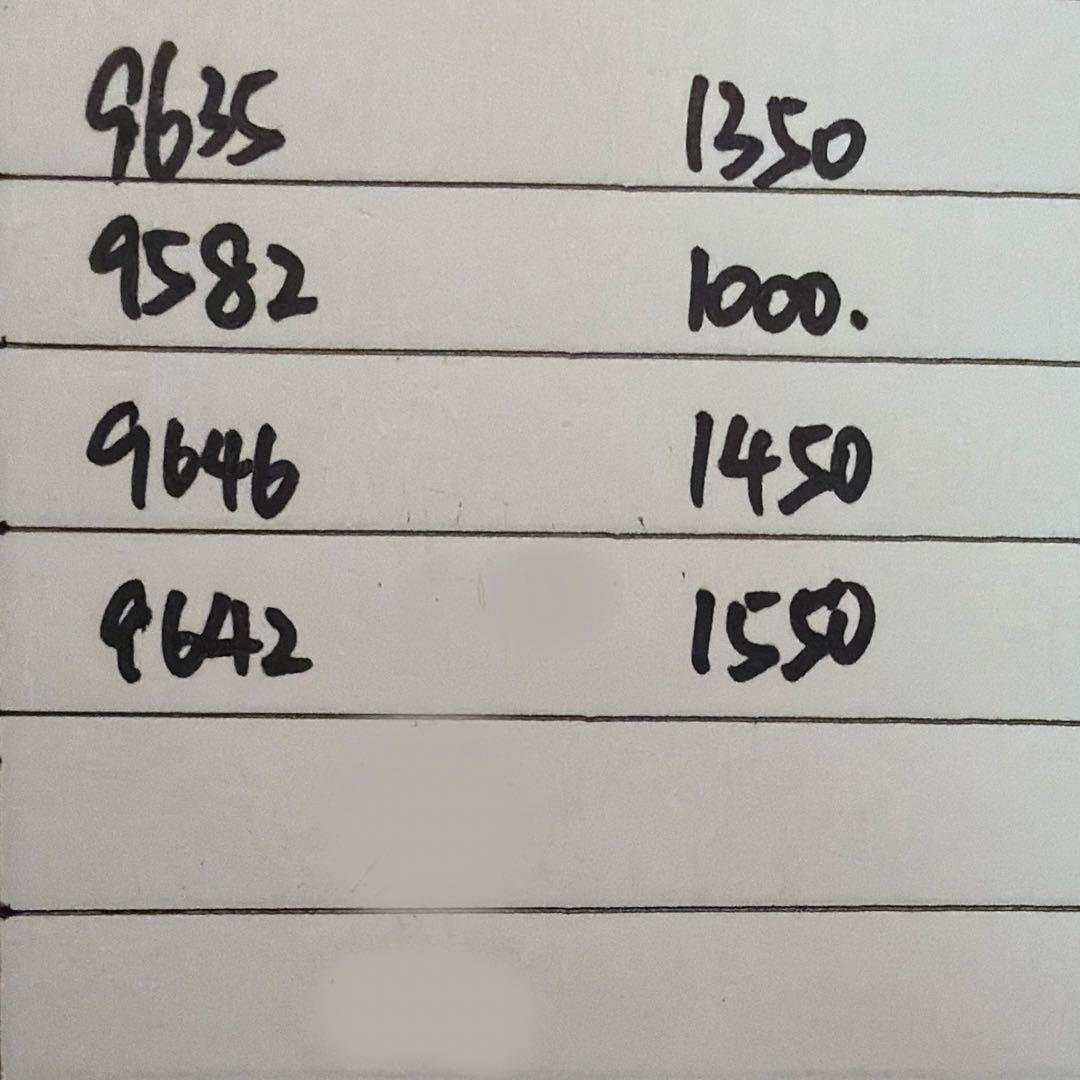 9635 1350
9582 1000.
9646 1450
9642 1550